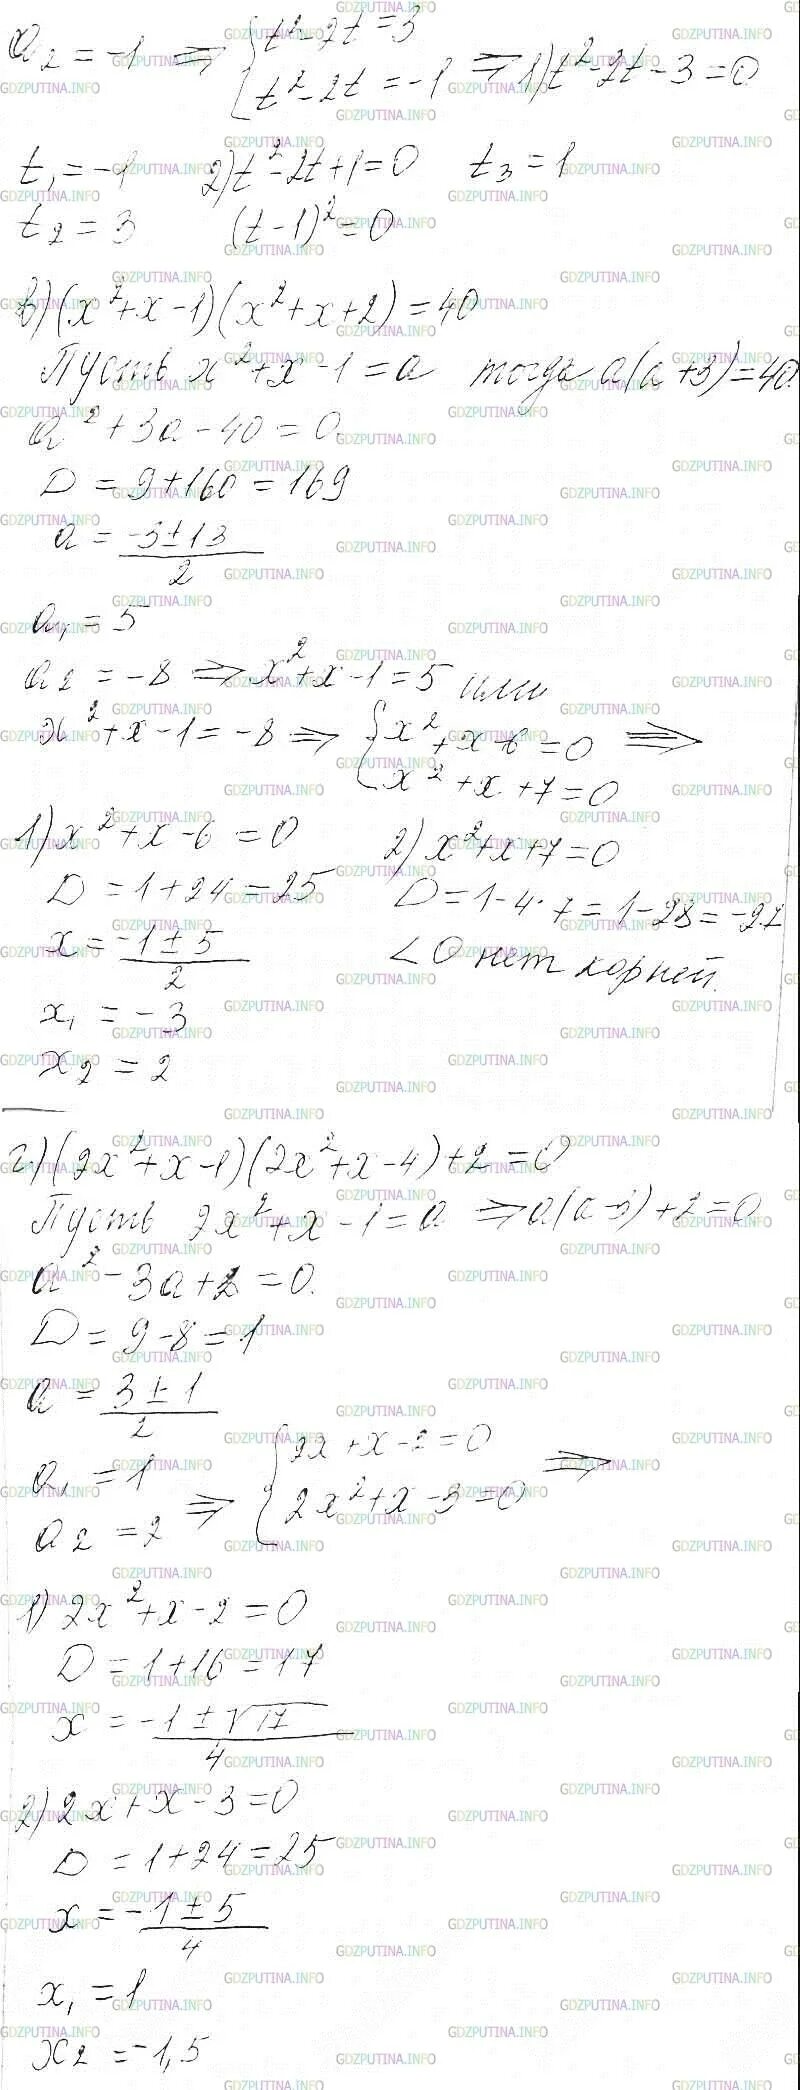 a₂ = -1 ⇒ { t² - 2t = 3
t² - 2t = -1 ⇒ 1) t² - 2t - 3 = 0
t₁ = -1   2) t² - 2t + 1 = 0   t₃ = 1
t₂ = 3   (t - 1)² = 0
в) (x² + x - 1)(x² + x + 2) = 40
Пусть x² + x - 1 = a   тогда a(a + 3) = 40.
a² + 3a - 40 = 0.
D = 9 + 160 = 169
a = (-3 ± 13)/2
a₁ = 5
a₂ = -8 ⇒ x² + x - 1 = 5 или
x² + x - 1 = -8 ⇒ { x² + x - 6 = 0 ⇒
x² + x + 7 = 0
1) x² + x - 6 = 0   2) x² + x + 7 = 0
D = 1 + 24 = 25   D = 1 - 4 · 7 = 1 - 28 = -27
x = (-1 ± 5)/2   < 0 нет корней.
x₁ = -3
x₂ = 2
г) (2x² + x - 1)(2x² + x - 4) + 2 = 0
Пусть 2x² + x - 1 = a ⇒ a(a - 3) + 2 = 0
a² - 3a + 2 = 0.
D = 9 - 8 = 1
a = (3 ± 1)/2
a₁ = 1 { 2x + x - 2 = 0 ⇒
a₂ = 2 ⇒ 2x² + x - 3 = 0
1) 2x² + x - 2 = 0
D = 1 + 16 = 17
x = (-1 ± √17)/4
2) 2x + x - 3 = 0
D = 1 + 24 = 25
x = (-1 ± 5)/4
x₁ = 1
x₂ = -1,5
GDZPUTINA.INFO